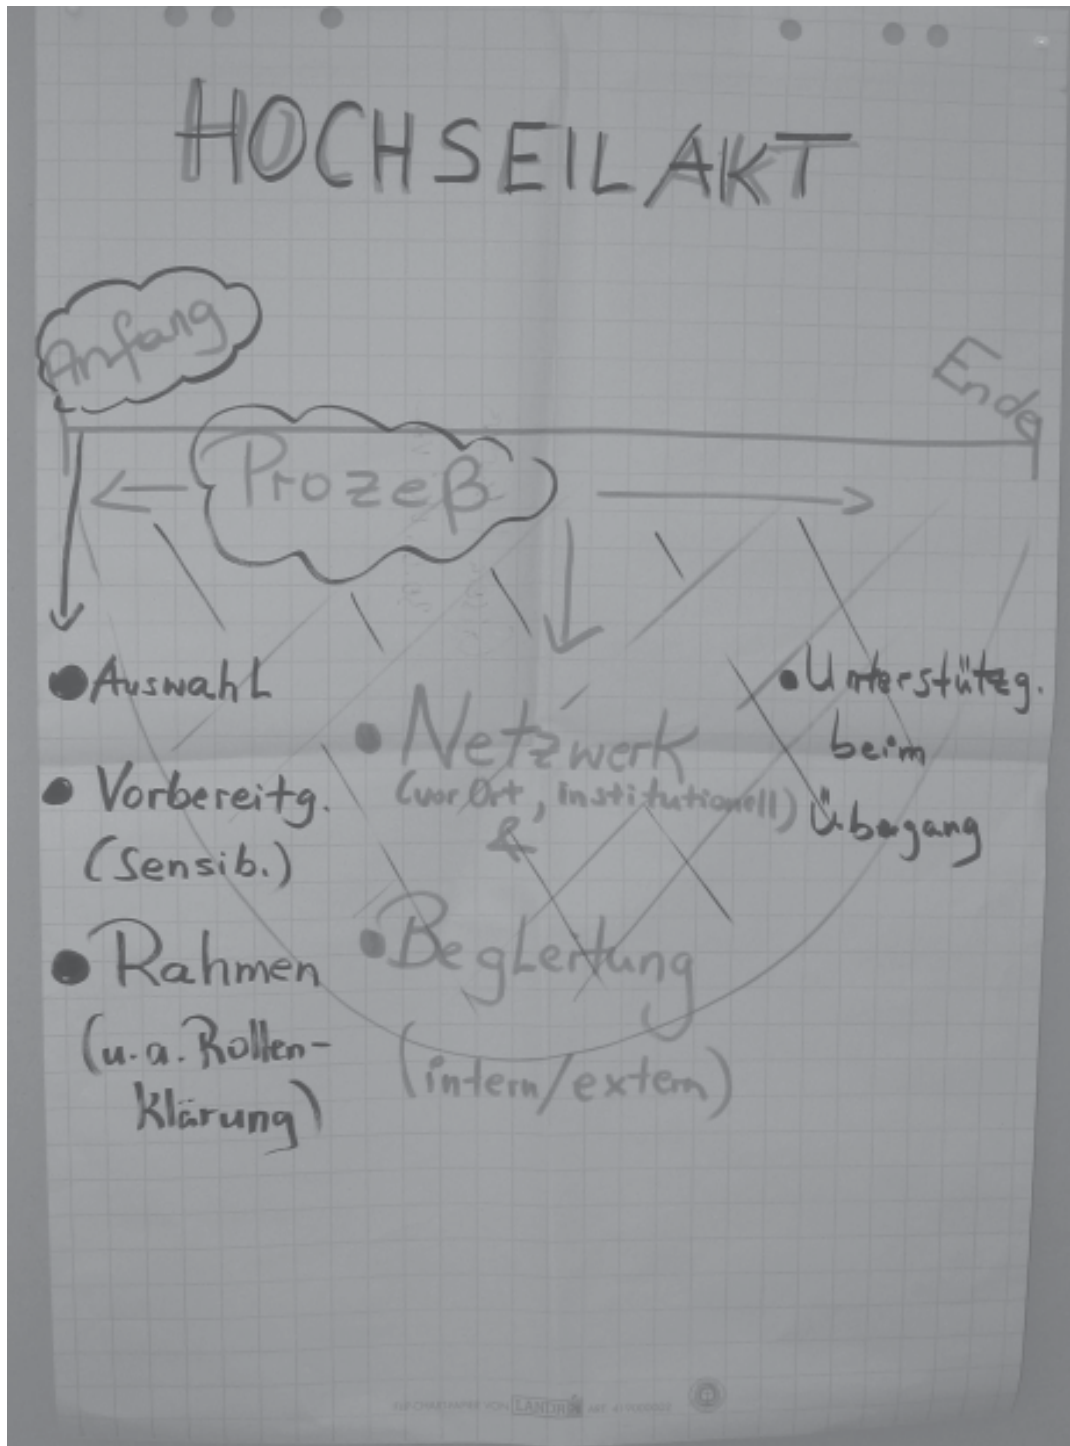 HOCHSEILAKT
Anfang
Ende
Prozeß
Auswahl
Vorbereitg.
(Sensib.)
Rahmen
(u.a. Rollen-
klärung)
Netzwerk
(vor Ort, institutionell)
&
Begleitung
(intern/extern)
Unterstützg.
beim
Übergang
LANDRÉ